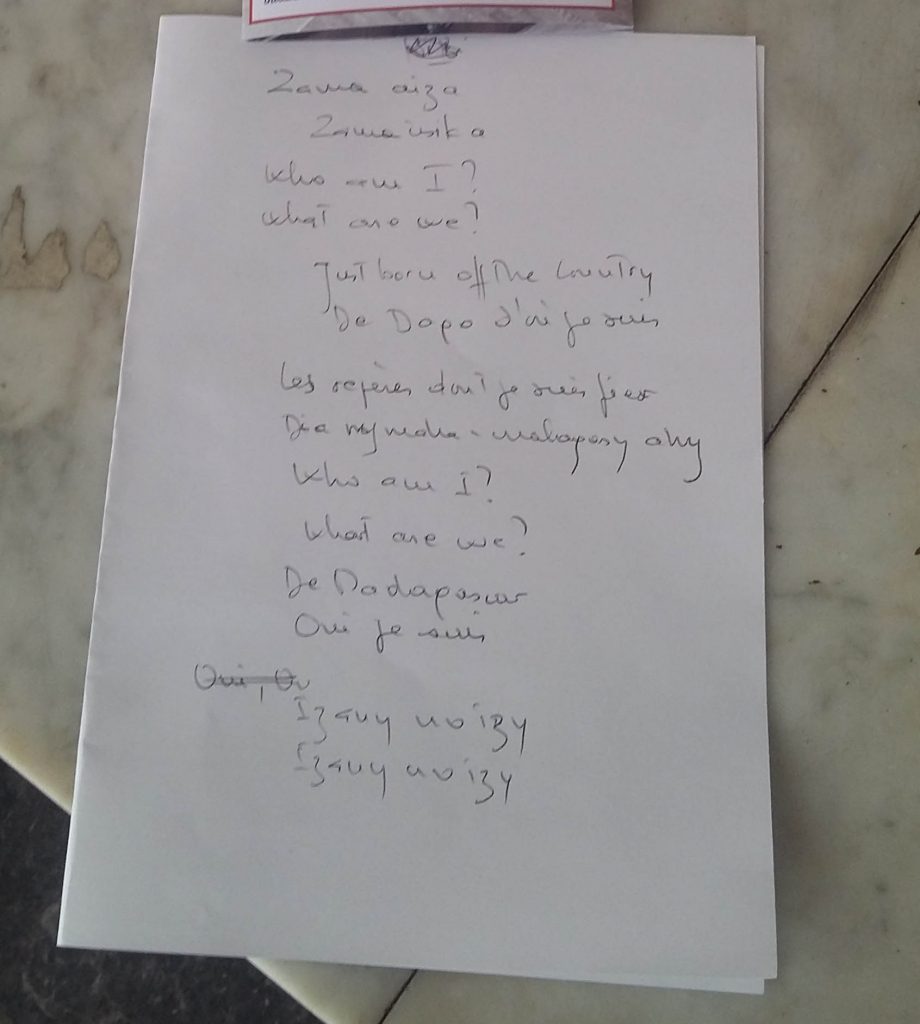 Zama aiza
Zama isika
Who am I?
What are we?
Just born off the country
De Dago d'où je suis
Les repères dont je suis fier
Dia ny maha-malagasy ahy
Who am I?
What are we?
De Madagascar
Oui je suis
Oui, Ou
Izany no izy
Izany no izy